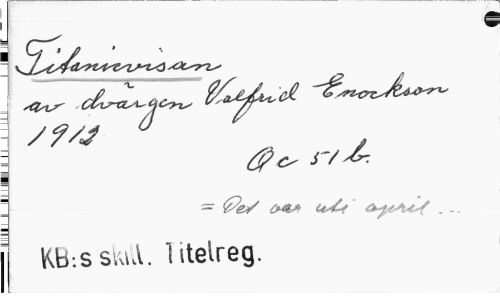 Titanicvisan
av dvärgen Valfrid Enockson
1912
Oc 51 b.
= Det var uti april ...
KB:s skill. Titelreg.